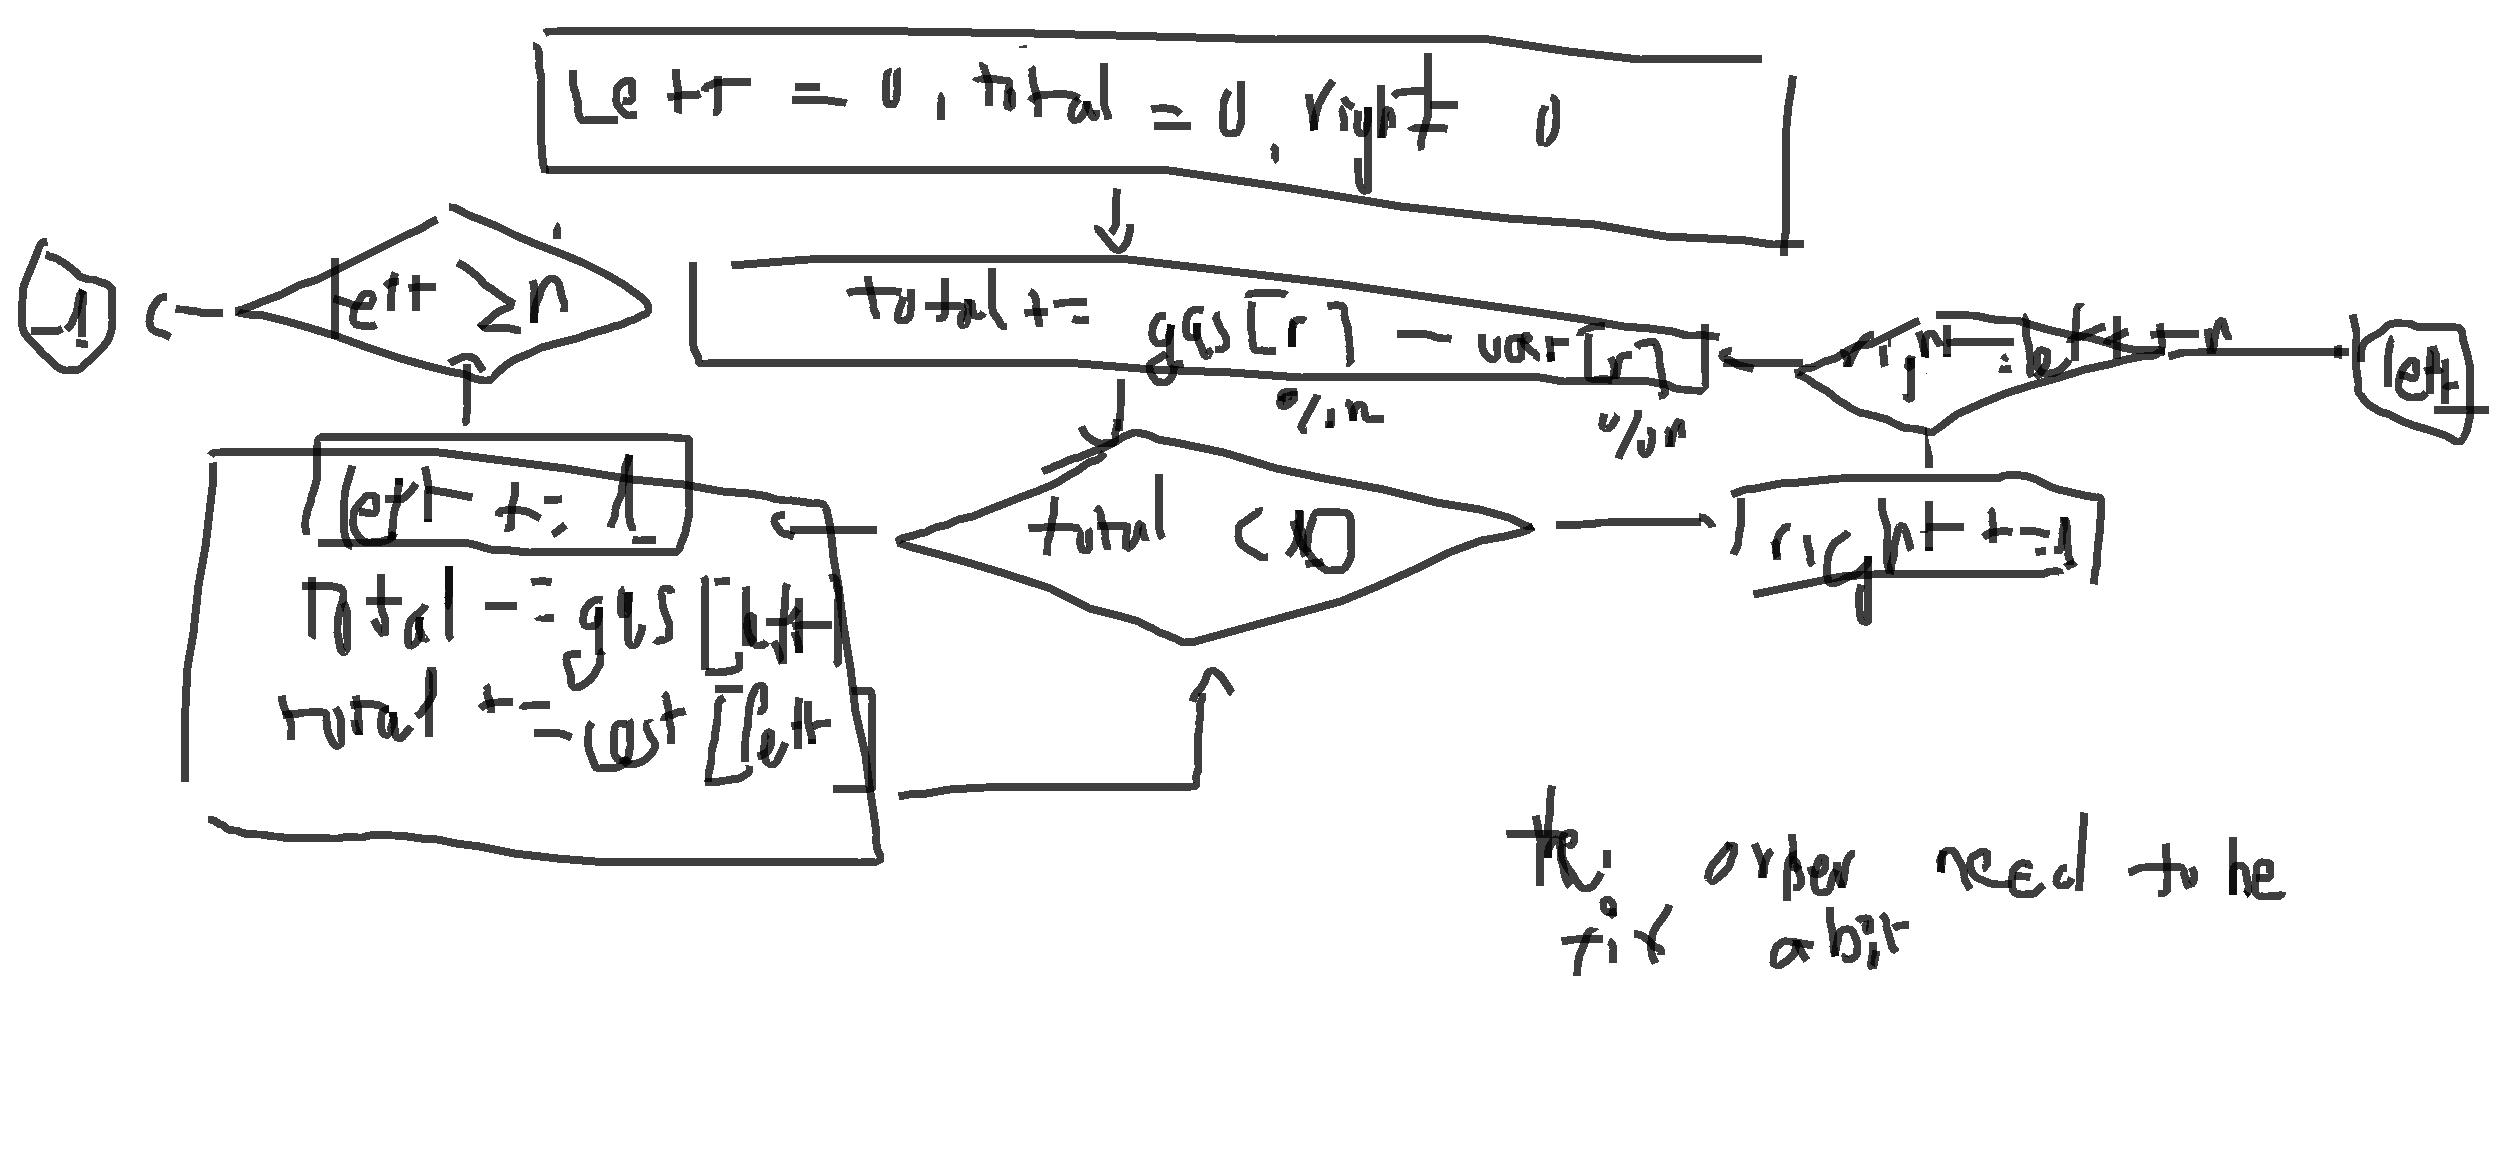 left = 0, total = 0, right = 0
left ≥ n
-1
total += gas[r] - cost[r]
%n
%n
right == left + n
left
left += 1
total < 0
right += 1
total -= gas[left]
total += cost[left]
the order need to be
fix a bit